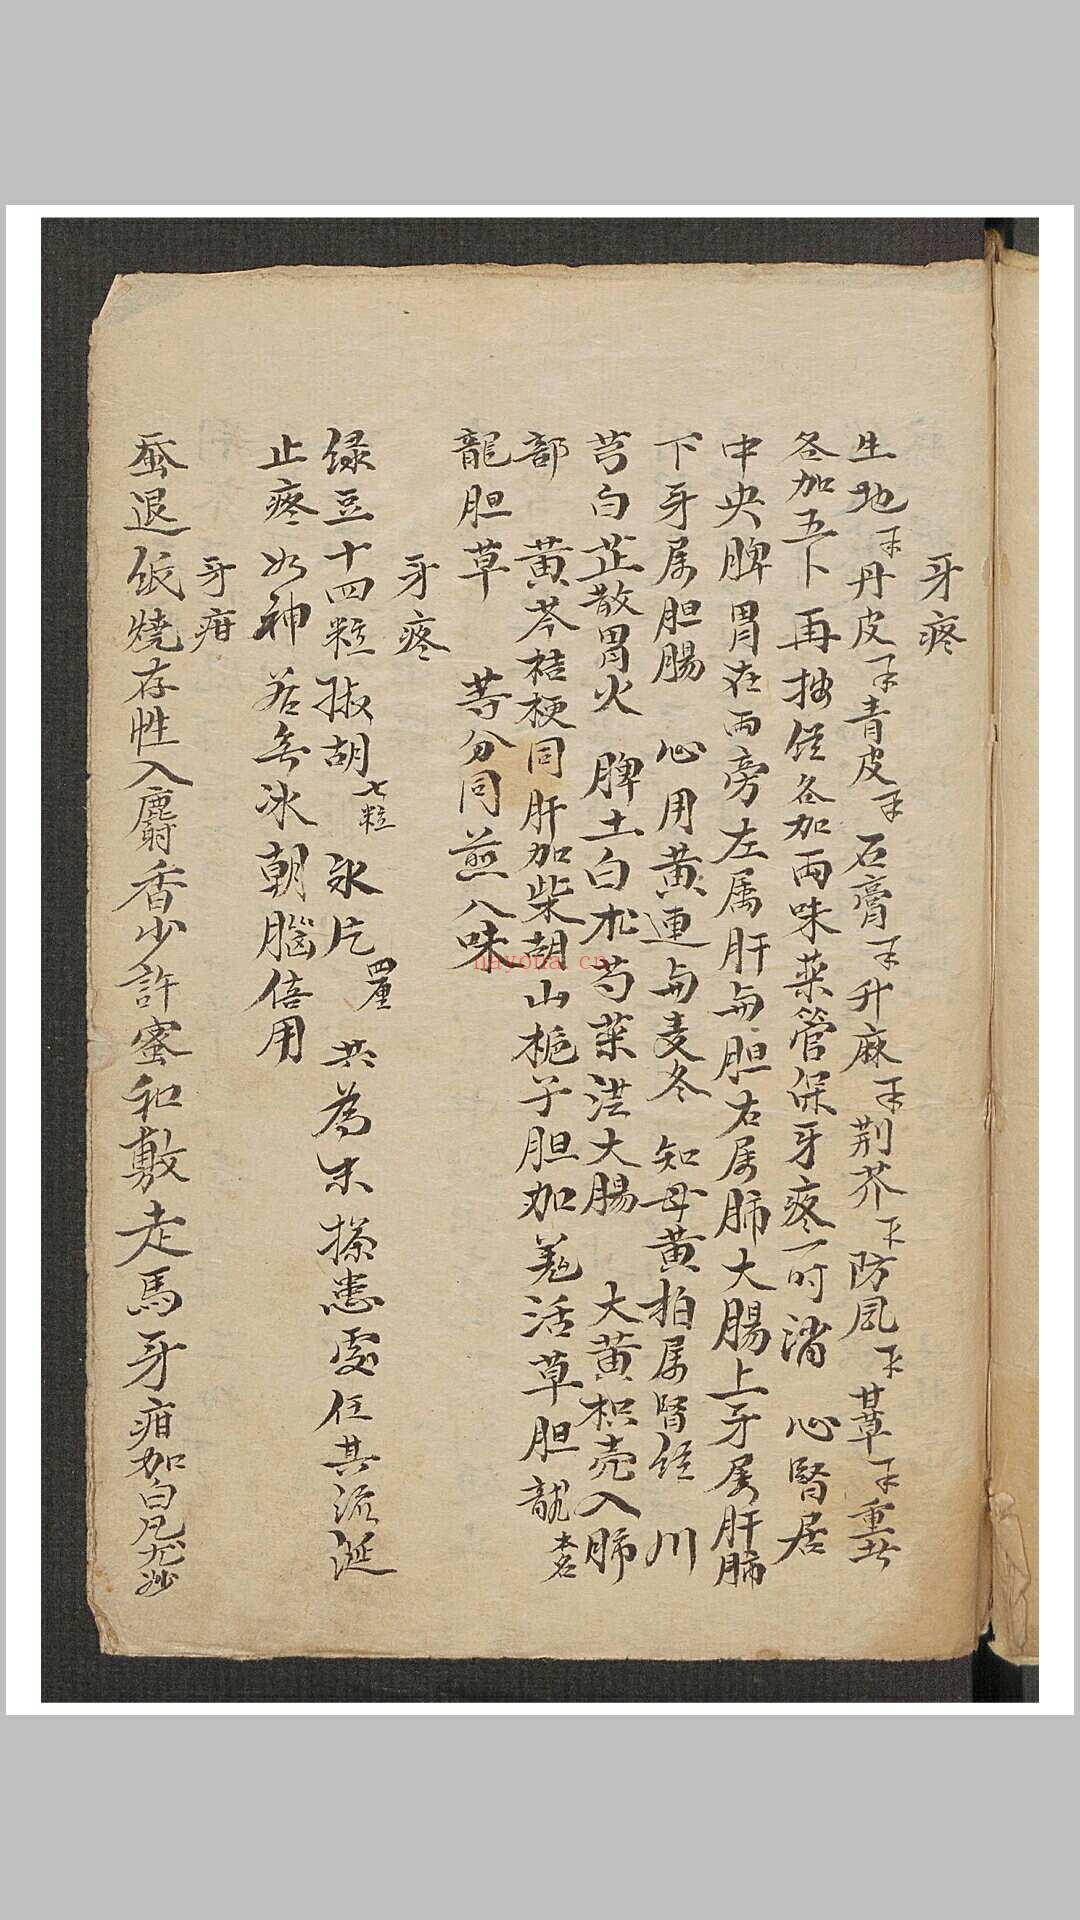 牙疼
生地 丹皮 青皮 石膏 升麻 荆芥 防風 甘草 重者
各加五卜 再按經各加兩味菜管保牙疼一时消 心腎居
中央脾胃在兩旁左属肝与胆右属肺大腸上牙属肝肺
下牙属胆腸 心用黄連与麦冬 知母黄柏属腎經 川
芎白芷散胃火 脾土白朮芍菜洪大腸 大黄枳壳入肺
部 黄芩桔梗同肝加柴胡山梔子胆加羌活草胆龍
龍胆草 等分同煎八味
牙疼
绿豆十四粒 椒胡七粒 氷片四厘 共為末搽患處任其流涎
止疼如神若無冰朝腦倍用
牙疳
蚕退紙燒存性入麝香少許蜜和敷走馬牙疳加白凡
nayona.cn